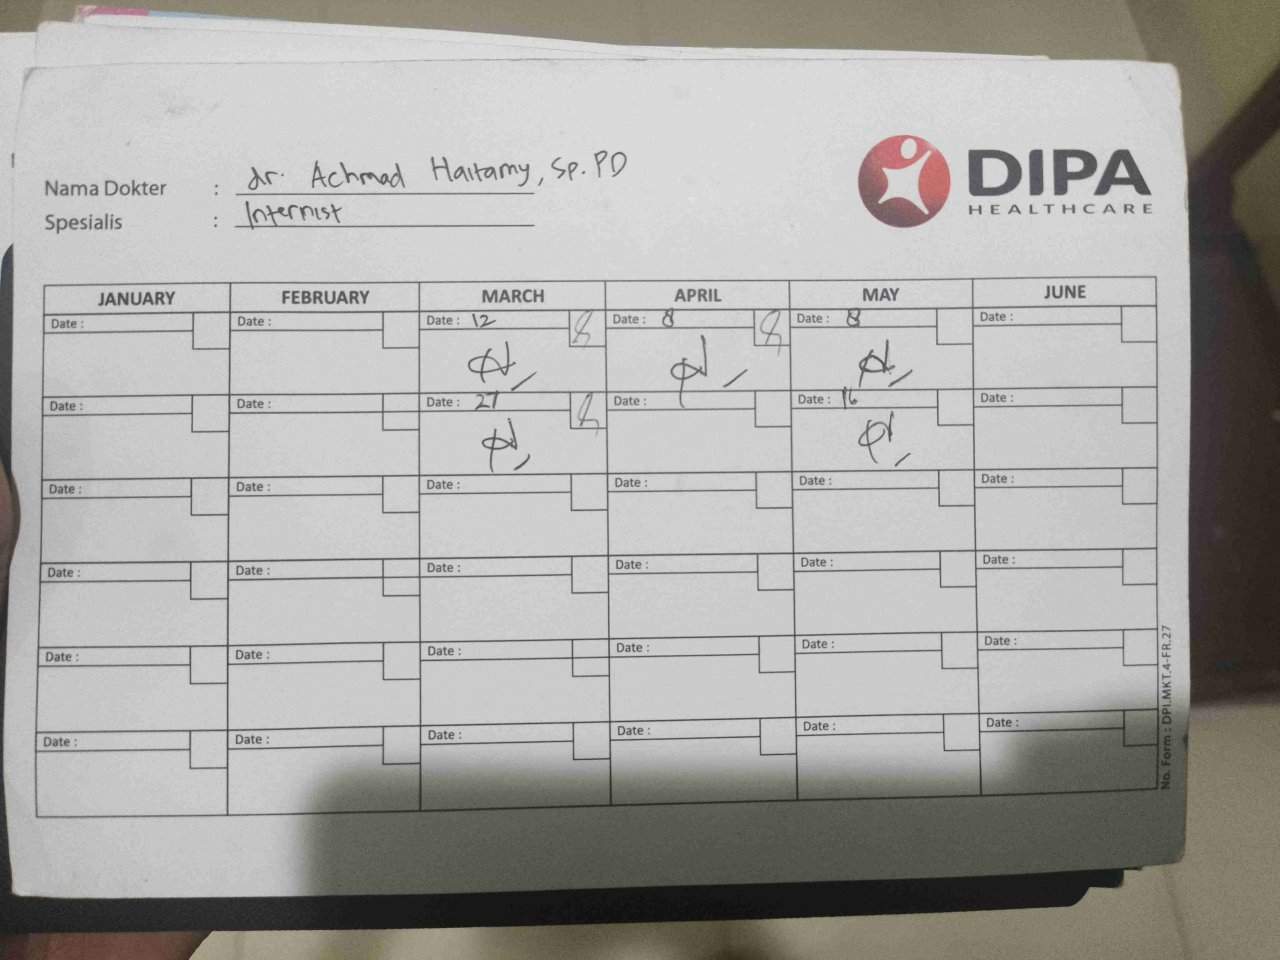 Nama Dokter : dr. Achmad Haitamy, Sp.PD
Spesialis : Internist
DIPA
HEALTHCARE
JANUARY FEBRUARY MARCH APRIL MAY JUNE
Date : Date : Date : 12 Date : 8 Date : 8 Date :
Date : Date : Date : 27 Date : Date : 16 Date :
Date : Date : Date : Date : Date : Date :
Date : Date : Date : Date : Date : Date :
Date : Date : Date : Date : Date : Date :
Date : Date : Date : Date : Date : Date :
No. Form : DPI.MKT.4-FR.27